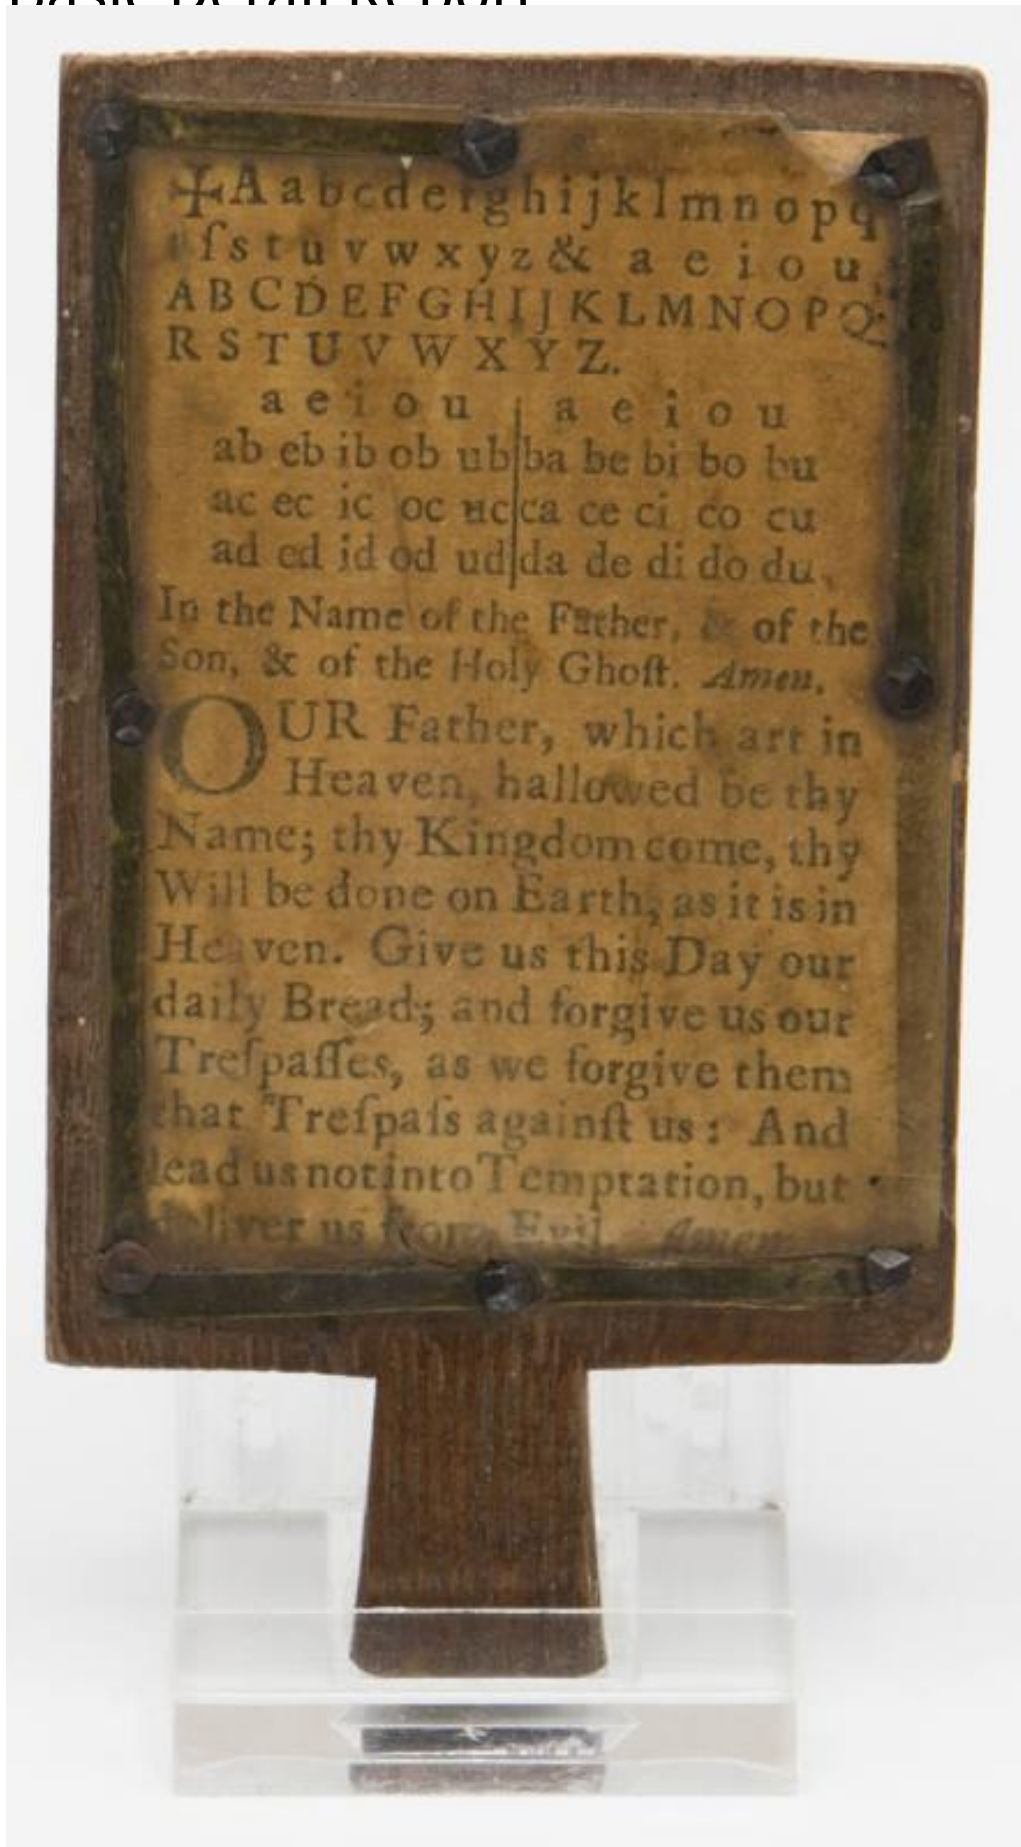 Basic Detail Report
✠A a b c d e f g h i j k l m n o p q
r ſ s t u v w x y z & a e i o u
A B C D E F G H I J K L M N O P Q
R S T U V W X Y Z.
a e i o u a e i o u
ab eb ib ob ub ba be bi bo bu
ac ec ic oc uc ca ce ci co cu
ad ed id od ud da de di do du
In the Name of the Father, & of the
Son, & of the Holy Ghoſt. Amen.
OUR Father, which art in
Heaven, hallowed be thy
Name; thy Kingdom come, thy
Will be done on Earth, as it is in
Heaven. Give us this Day our
daily Bread; and forgive us our
Treſpaſſes, as we forgive them
that Treſpaſs againſt us: And
lead us not into Temptation, but
deliver us from Evil. Amen.